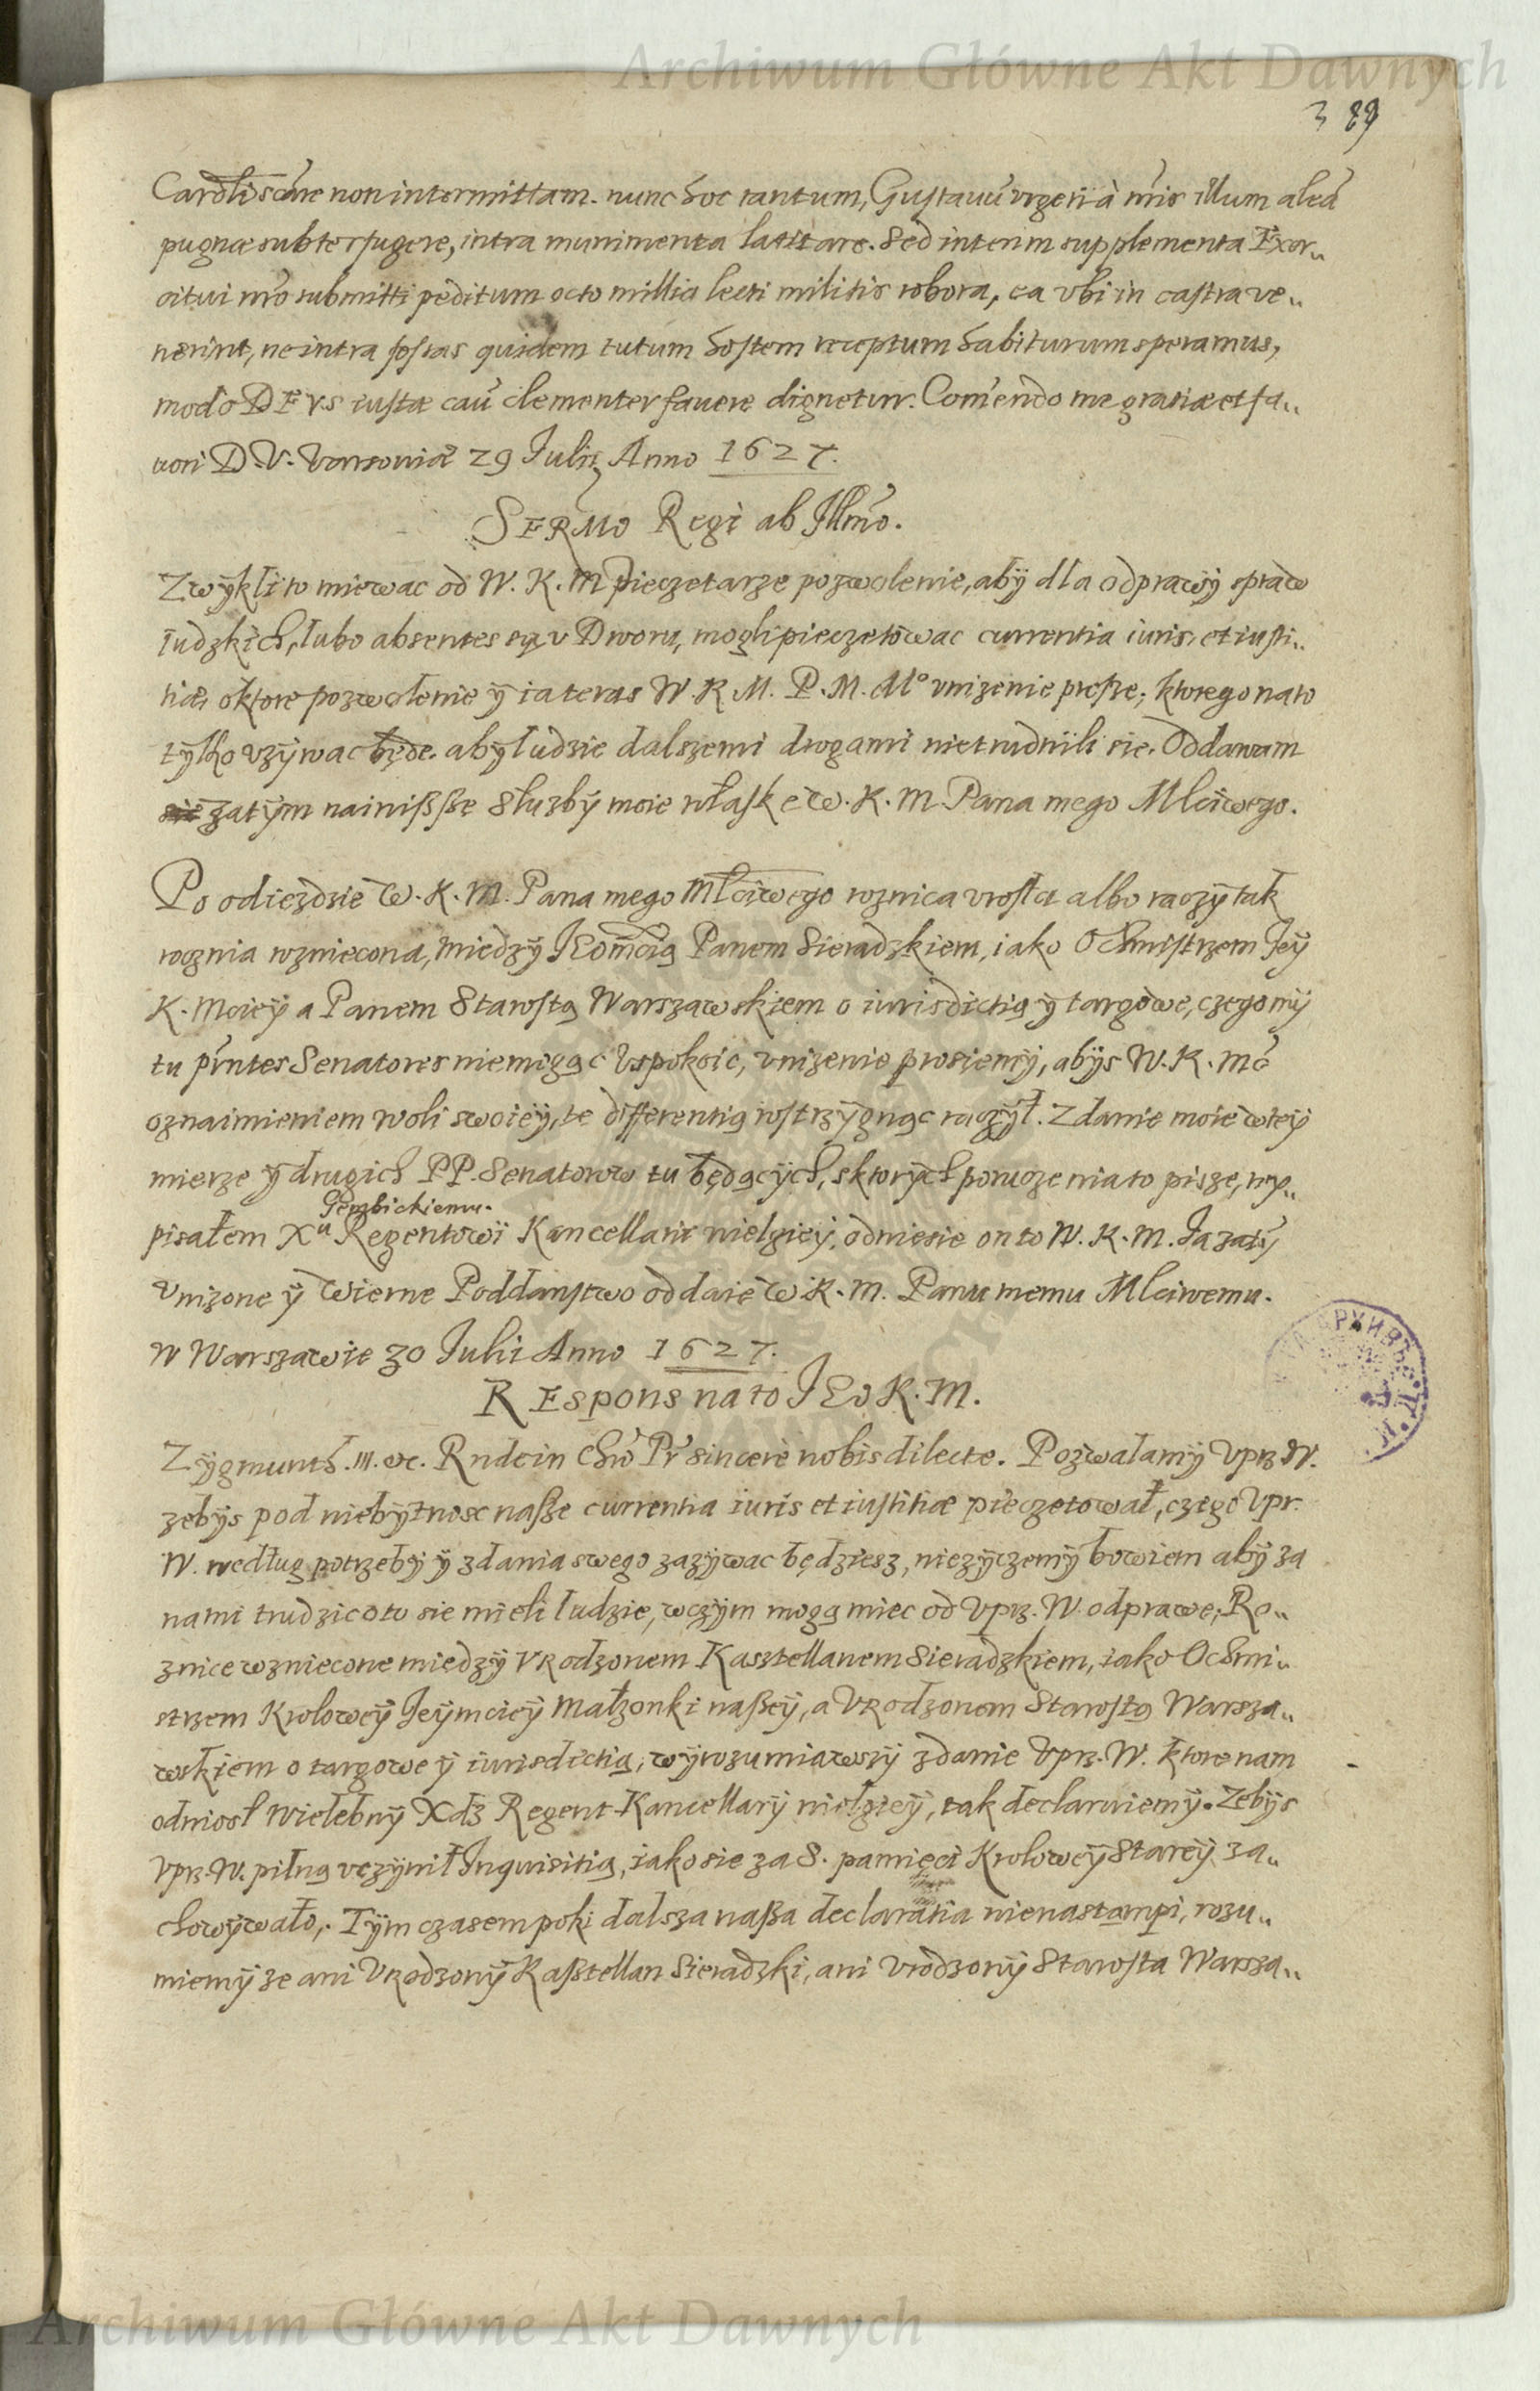 Archiwum Główne Akt Dawnych
389
non intermittam. nunc hoc tantum, Gustauũ vrgeri à nr̃is illum aleã
pugnæ subterfugere, intra munimenta latitare. Sed interim supplementa Exer„
citui nr̃o submitti peditum octo millia lecti militis robora, ea vbi in castra ve„
nerint, ne intra fossas quidem tutum hostem receptum habiturum speramus,
modo DEVS iustæ cau᷉ clementer fauere dignetur. Com̃endo me gratiæ et fa„
uori D. V. Varsouiæ 29 Iulij Anno 1627.
SERMO Regi ab Illm̃o.
Zwÿkli to miewac od W. K. M pieczetarze pozwolenie, abÿ dla odprawÿ spraw
ludzkich, lubo absentes są v Dworu, mogli pieczetowac currentia iuris et iusti„
tiæ, o ktore pozwolenie ÿ ia teras W. K M. P. M. Mº vnizenie prosze; ktorego na to
tÿlko vzÿwac będe. abÿ ludzie dalszemi drogami nie trudnili sie. Oddawam
zatÿm nainissze Sluzbÿ moie w łaske W. K. M. Pana mego Mlciwego.
Po odiezdzie W. K. M. Pana mego Mlciwego roznica vrosła albo raczÿ tak
rocznia rozniecona, miedzÿ JEom̃cią Panem Sieradzkiem, iako Ochmistrzem Jeÿ
K. Mcieÿ a Panem Starostą Warszawskiem o iurisdictią ÿ targowe, czego mÿ
tu pr̃ntes Senatores niemogąc Vspokoic, vnizenie prosiemÿ, abÿs W. K. Mc̃
oznaimieniem woli swoieÿ, te differentią rostrzÿgnąc raczÿł. Zdanie moie w teÿ
mierze ÿ drugich PP. Senatorow tu będącÿch, s ktorÿch poruczenia to pisze, wy„
Gembickiemu.
pisałem Xᵘ Regentowi Kancellarie wielgieÿ, odniesie on to W. K. M. Ja zatÿ
vnizone ÿ Wierne Poddanstwo oddaie W K. M. Panu memu Mlciwemu.
W Warszawie 30 Iulii Anno 1627.
RESpons na to JEo K. M.
Zÿgmunth .III. etc. Rndein Chr̃o Pr̃ sincerè nobis dilecte. Pozwalamÿ Vprz W.
zebÿs pod niebÿtnosc nasze currentia iuris et iustitiæ pieczetował, czego Vpr.
W. według potrzebÿ ÿ zdania swego zazÿwac będziesz, nie zÿczemÿ bowiem abÿ za
nami trudzic o to sie mieli ludzie, w czÿm mogą miec od Vprz. W. odprawe; Ro„
znice wzniecone miedzÿ Vrodzonem Kasztellanem Sieradzkiem, iako Ochmi„
strzem Krolowéÿ Jeÿmcieÿ Małzonki naszeÿ, a Vrodzonem Starostą Warsza„
wskiem o targowe ÿ iurisdictią; wÿrozumiawszÿ zdanie Vprz. W. ktore nam
odniosł Wielebnÿ Xdz Regent Kancellarÿ wielgieÿ, tak declaruiemÿ. Zebÿs
Vprz. W. pilną vczÿnił Inquisitią, iako sie za S. pamięci Kroloweÿ Stareÿ za„
chowÿwało; Tÿm czasem poki dalsza nasza declaratia nie nastąmpi, rozu„
miemÿ ze ani Vrodzonÿ Kasztellan Sieradzki, ani Vrodzonÿ Starosta Warsza„
Archiwum Główne Akt Dawnych